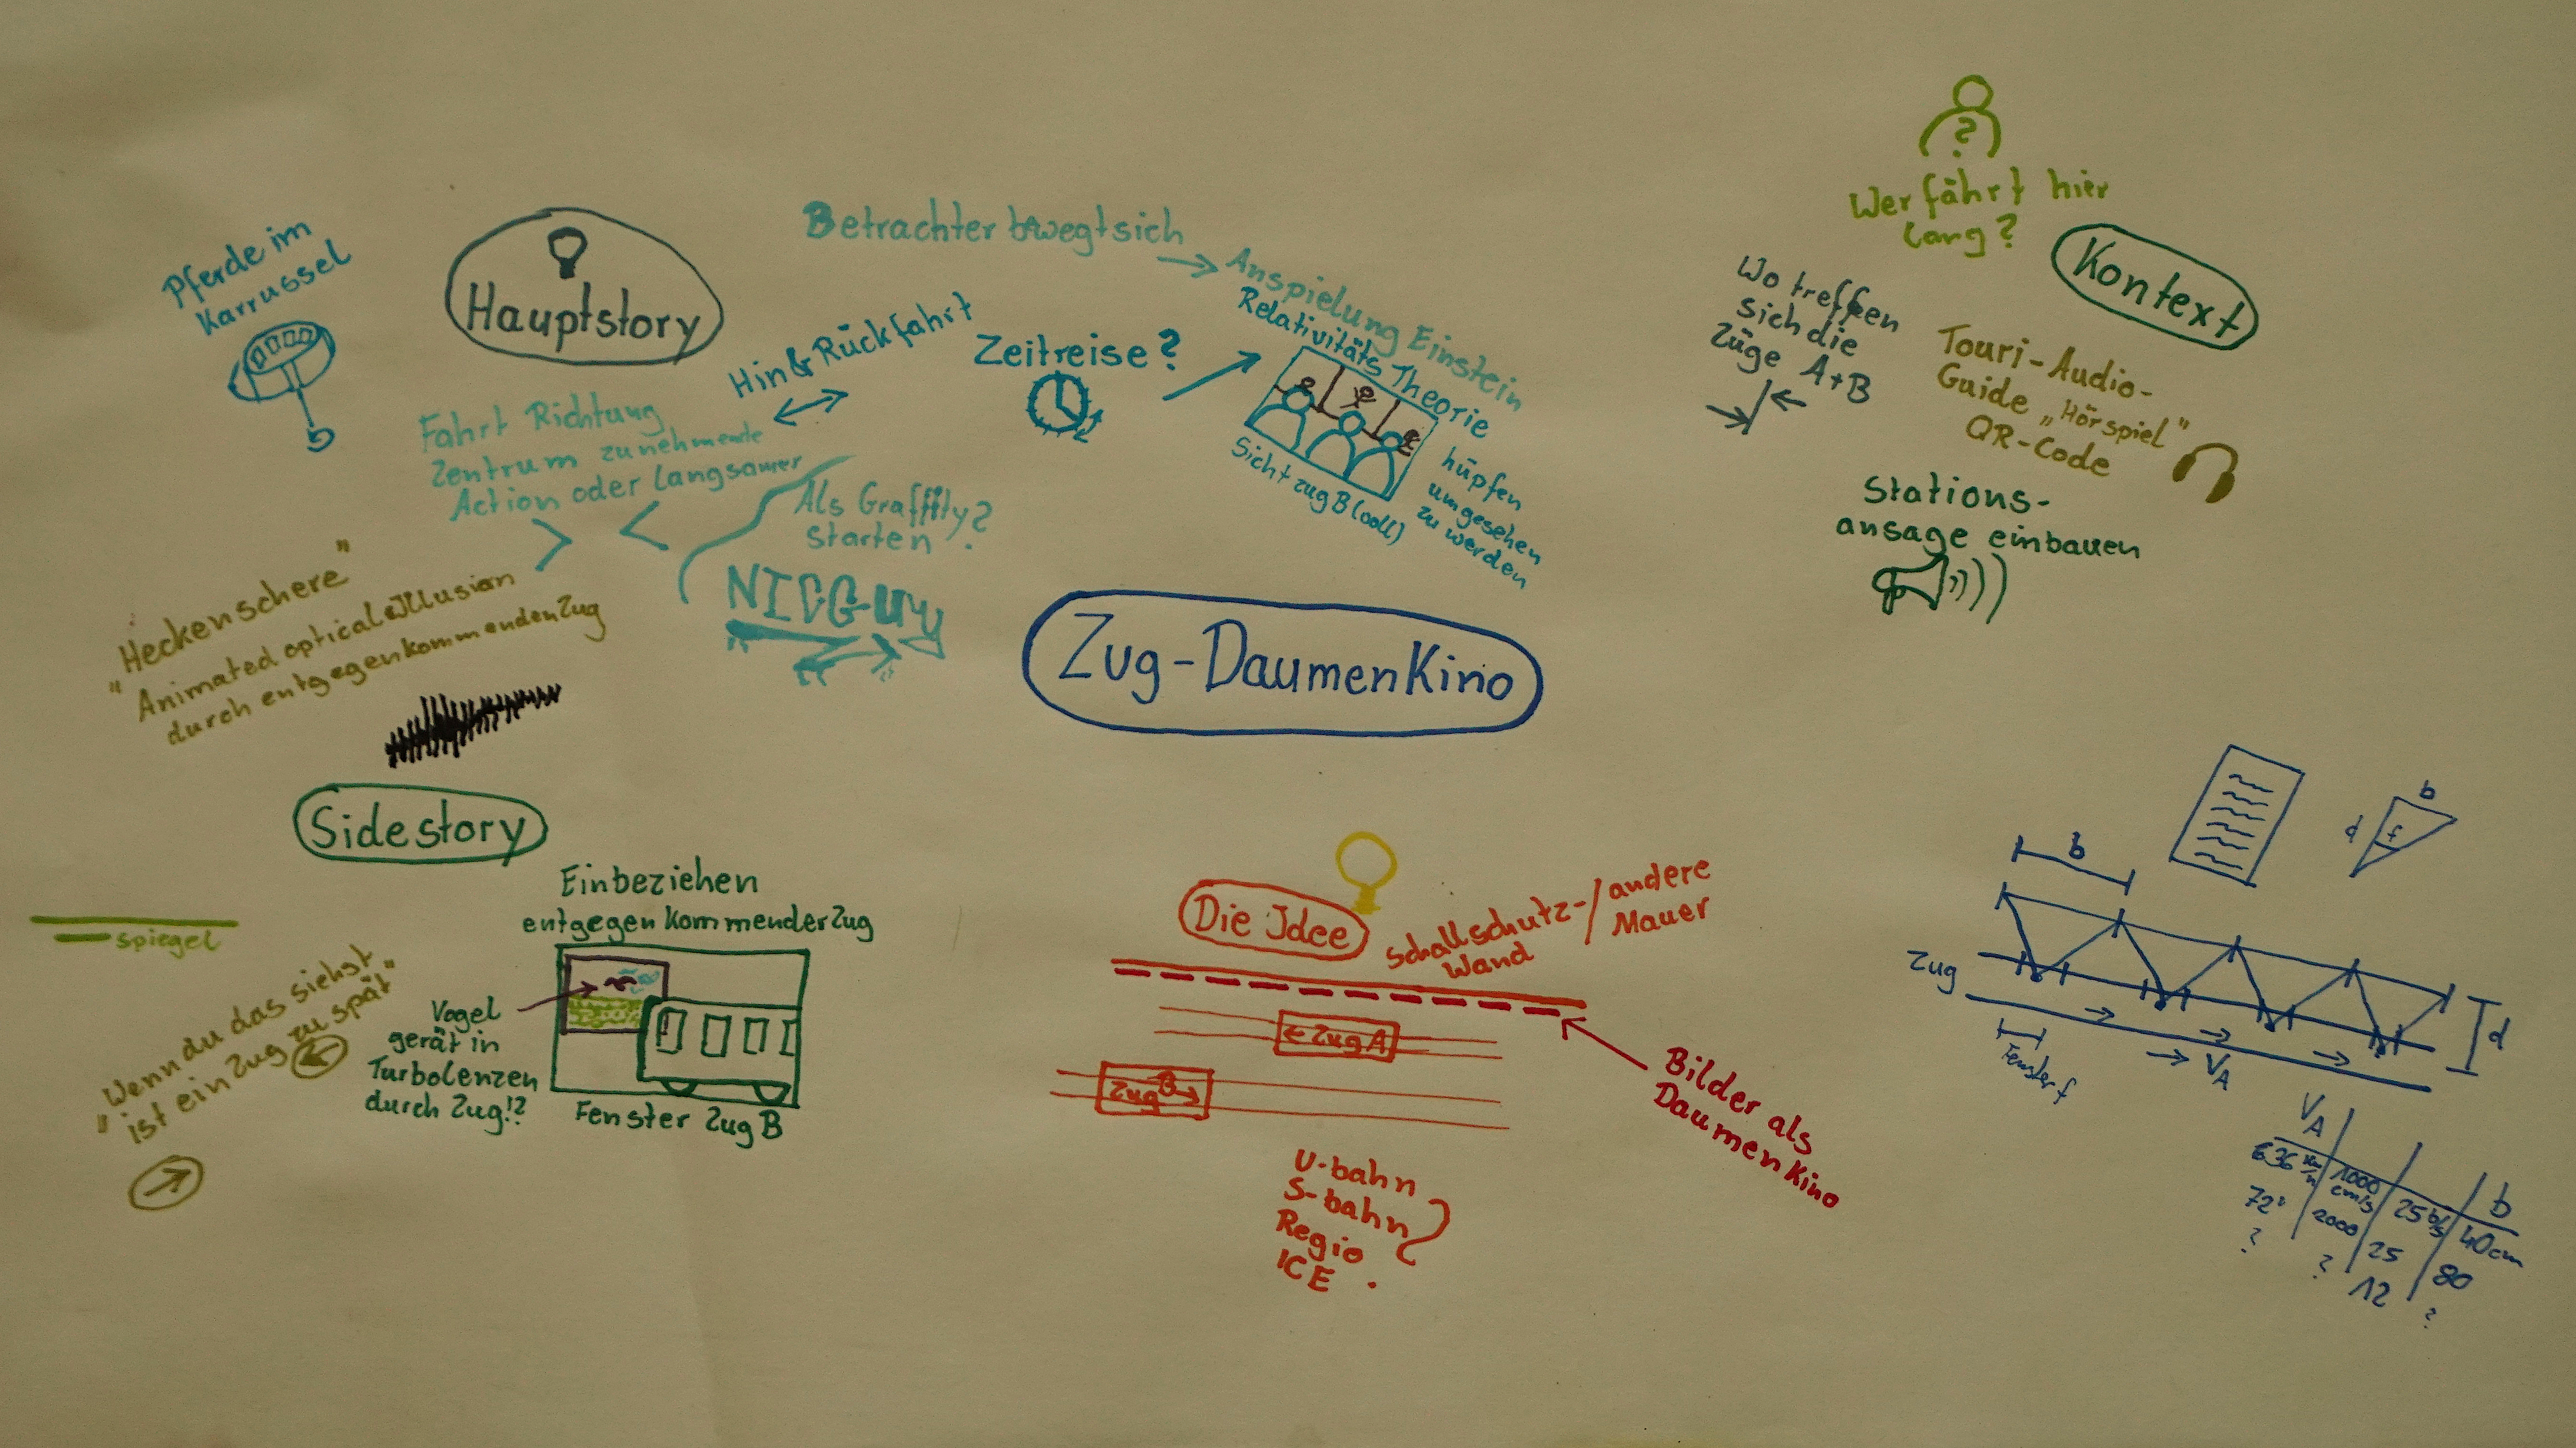 Pferde im
Karrussel
Hauptstory
Betrachter bewegt sich
Anspielung Einstein
Relativitäts Theorie
Hin & Rückfahrt
Zeitreise?
Fahrt Richtung
Zentrum zunehmende
Action oder Langsamer
Sicht zug B (voll)
hüpfen
um gesehen
zu werden
Als Graffity?
starten
"Heckenschere"
"Animated optical Illusion
durch entgegenkommenden Zug
Zug-Daumenkino
Wer fährt hier
lang?
Kontext
Wo treffen
sich die
Züge A+B
Touri-Audio-
Guide „Hörspiel"
QR-Code
Stations-
ansage einbauen
Sidestory
Spiegel
"Wenn du das siehst
ist ein Zug zu spät"
Einbeziehen
entgegenkommender Zug
Vogel
gerät in
Turbolenzen
durch Zug!?
Fenster Zug B
Die Idee
Schallschutz-/andere
Wand Mauer
← Zug A
Zug B →
Bilder als
Daumenkino
U-bahn
S-bahn
Regio
ICE
?
b
d f
b
Zug
d
Fenster f
VA
VA b
1000 cm/s 25 b/s 40cm
72" 2000 25 80
? ? 12 ?